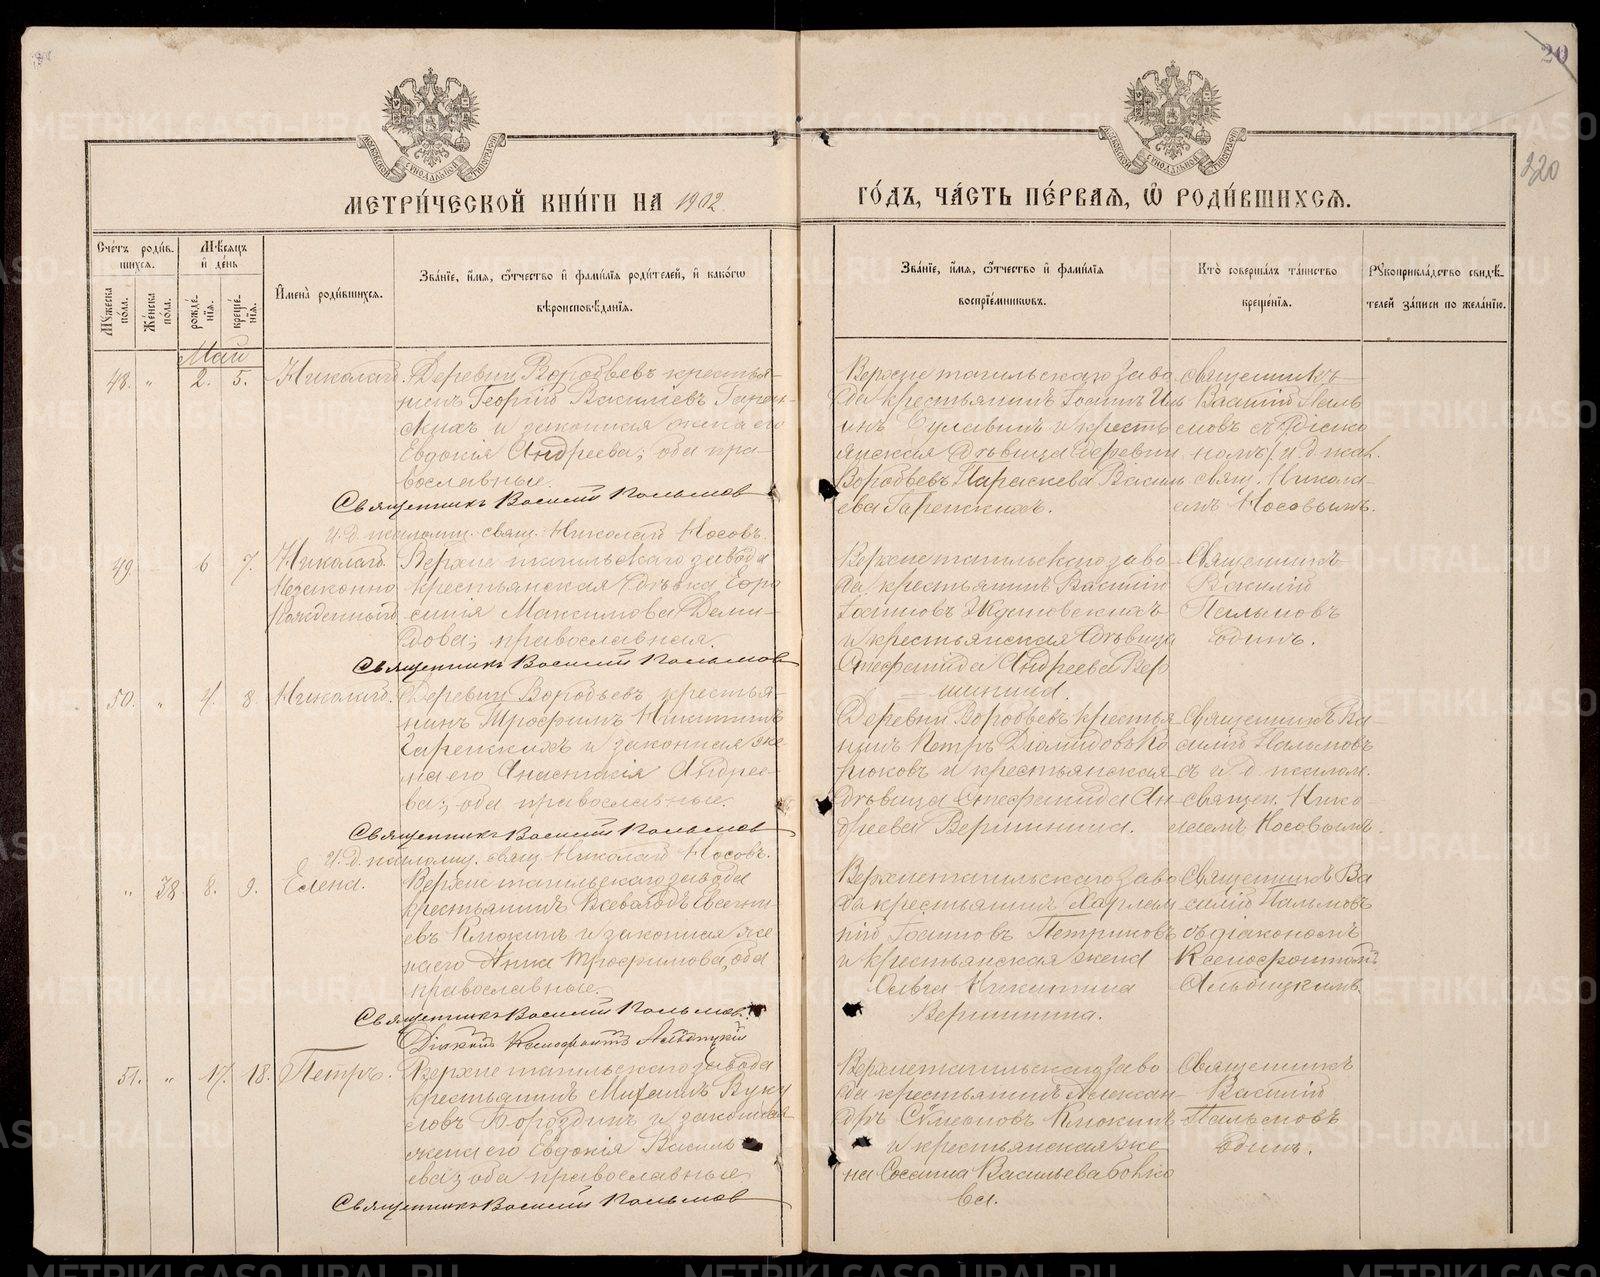 20
220
МОСКОВСКОЙ СѴНОДАЛЬНОЙ ТИПОГРАФІИ
МОСКОВСКОЙ СѴНОДАЛЬНОЙ ТИПОГРАФІИ
МЕТРИ́ЧЕСКОЙ КНИ́ГИ НА 1902
ГО́ДЪ, ЧА́СТЬ ПЕ́РВАЯ, Ѽ РОДИ́ВШИХСЯ.
Сче́тъ роди́вшихся.
Му́жеска по́ла.
Же́нска по́ла.
Мѣ́сяцъ и де́нь
рожде́нія.
креще́нія.
Имена̀ роди́вшихся.
Зва́ніе, и́мя, ѻ́тчество и фами́лія роди́телей, и како́гѡ
вѣроисповѣ́данія.
Зва́ніе, и́мя, ѻ́тчество и фами́лія
воспріе́мниковъ.
Кто̀ соверша́лъ та́инство
креще́нія.
Рукоприкла́дство свидѣ́-
телей за́писи по жела́нію.
Май
48. " 2. 5. Николай.
Деревни Воробьевъ крестья-
нинъ Георгій Василіевъ Гарен-
скихъ и законная жена его
Евдокія Андреева; оба пра-
вославные.
Священникъ Василій Пальмовъ
И. д. псаломщ. свящ. Николай Носовъ.
Верхнетагильскаго заво
да крестьянинъ Іоаннъ Иль
инъ Сулавинъ и кресть
янская дѣвица деревни
Воробьевъ Параскева Василь
ева Гаренскихъ.
Священникъ
Василій Паль
мовъ съ
и. д. псал.
свящ. Никола-
емъ Носовымъ.
49. 6 7. Николай
Незаконно
рожденный
Верхнетагильскаго завода
крестьянская дѣвка Евфро
синія Максимова Деми-
дова; православная.
Священникъ Василій Пальмовъ
Верхнетагильскаго заво
да крестьянинъ Василій
Іоанновъ
и крестьянская дѣвица
Стефанида Андреева Вер
шинина.
Священникъ
Василій
Пальмовъ
одинъ.
50. " 7. 8 Николай.
Деревни Воробьевъ крестья-
нинъ Трофимъ Никитинъ
Гаренскихъ и законная же-
на его Анастасія Андрее-
ва; оба православные.
Священникъ Василій Пальмовъ
И. д. псаломщ. свящ. Николай Носовъ.
Деревни Воробьевъ крестья
нинъ Петръ Діомидовъ Ко
рюковъ и крестьянская
дѣвица Стефанида Ан
дреева Вершинина.
Священникъ Ва-
силій Пальмовъ
съ и. д. псалом.
священ. Нико-
лаемъ Носовымъ.
" 38. 8. 9. Елена.
Верхнетагильскаго завода
крестьянинъ Всеволодъ Евгені
евъ Клюкинъ и законная же
на его Анна Трофимова, оба
православные.
Священникъ Василій Пальмовъ.
Діаконъ Ксенофонтъ Альбицкій
Верхнетагильскаго заво
да крестьянинъ Харлам
пій Іоанновъ Петриковъ
и крестьянская жена
Ольга Никитина
Вершинина.
Священникъ Ва
силій Пальмовъ
съ діакономъ
Ксенофонтомъ
Альбицкимъ.
51. " 17. 18. Петръ.
Верхнетагильскаго завода
крестьянинъ Михаилъ Вуку
ловъ Бороздинъ и законная
жена его Евдокія Василь
ева; оба православные
Священникъ Василій Пальмовъ
Верхнетагильскаго заво
да крестьянинъ Алексан-
дръ Сѵмеоновъ Клюкинъ
и крестьянская же-
на Сосанна Васильева
ва.
Священникъ
Василій
Пальмовъ
одинъ.
METRIKI.GASO-URAL.RU